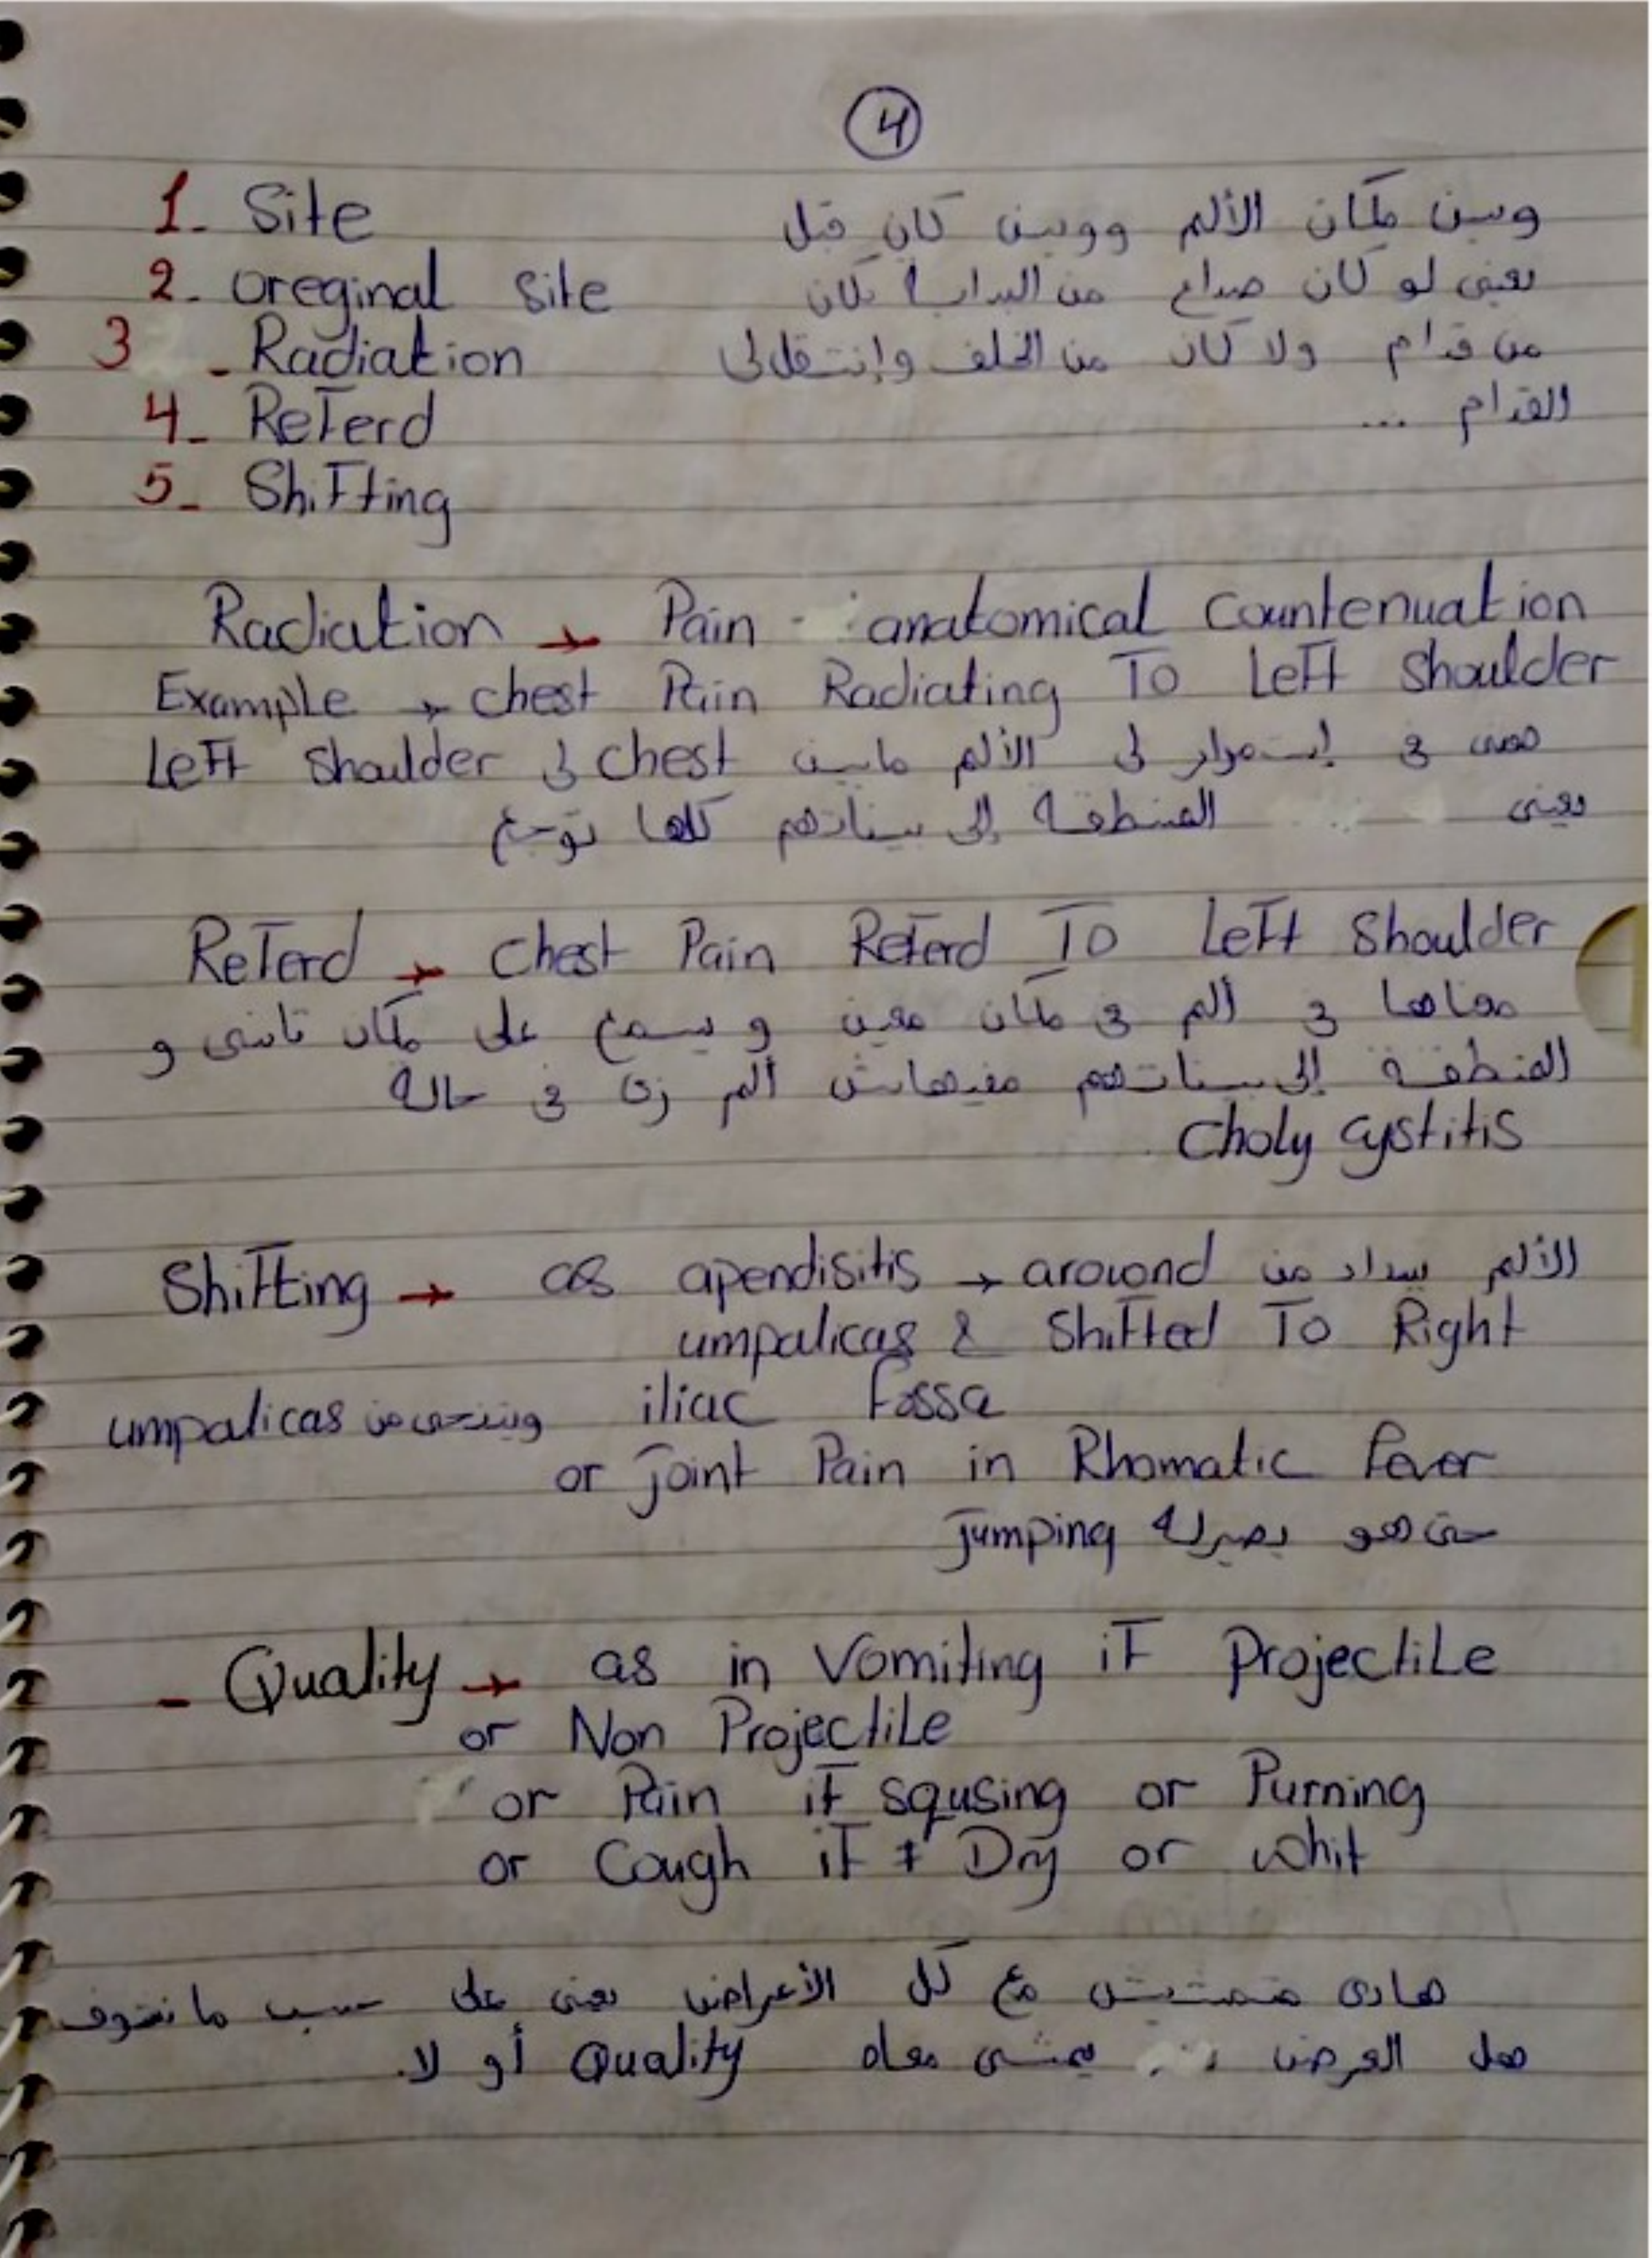 4
1- Site وين مكان الألم ووين كان قبل
2- oreginal site يعني لو كان صداع من البداية كان
3 - Radiation من قدام ولا كان من الخلف وإنتقل لى
4- Referd القدام ...
5- Shifting
Radiation → Pain anatomical Countenuation
Example → chest Pain Radiating To Left Shoulder
معنى في إستمرار لى الألم مابين chest لى Left Shoulder
يعني المنطقة إلى بيناتهم كلها توجع
Referd → Chest Pain Referd To Left Shoulder
معناها في ألم في مكان معين و يسمع على مكان تاني و
المنطقة إلى بيناتهم مفيهاش ألم زى في حالة
Choly Cystitis
Shifting → as apendisitis → around الألم يبدا من
umpalicas & Shifted To Right
iliac Fossa وينتحى من umpalicas
or joint Pain in Rhomatic Fever
حتى هو يصيرله Jumping
- Quality → as in Vomiting if Projectile
or Non Projectile
or Pain if squsing or Purning
or Cough if Dry or whit
هادى متمشيش مع كل الأعراض يعني على حسب ما نشوف
هل العرض يمشى معاه Quality أو لا.